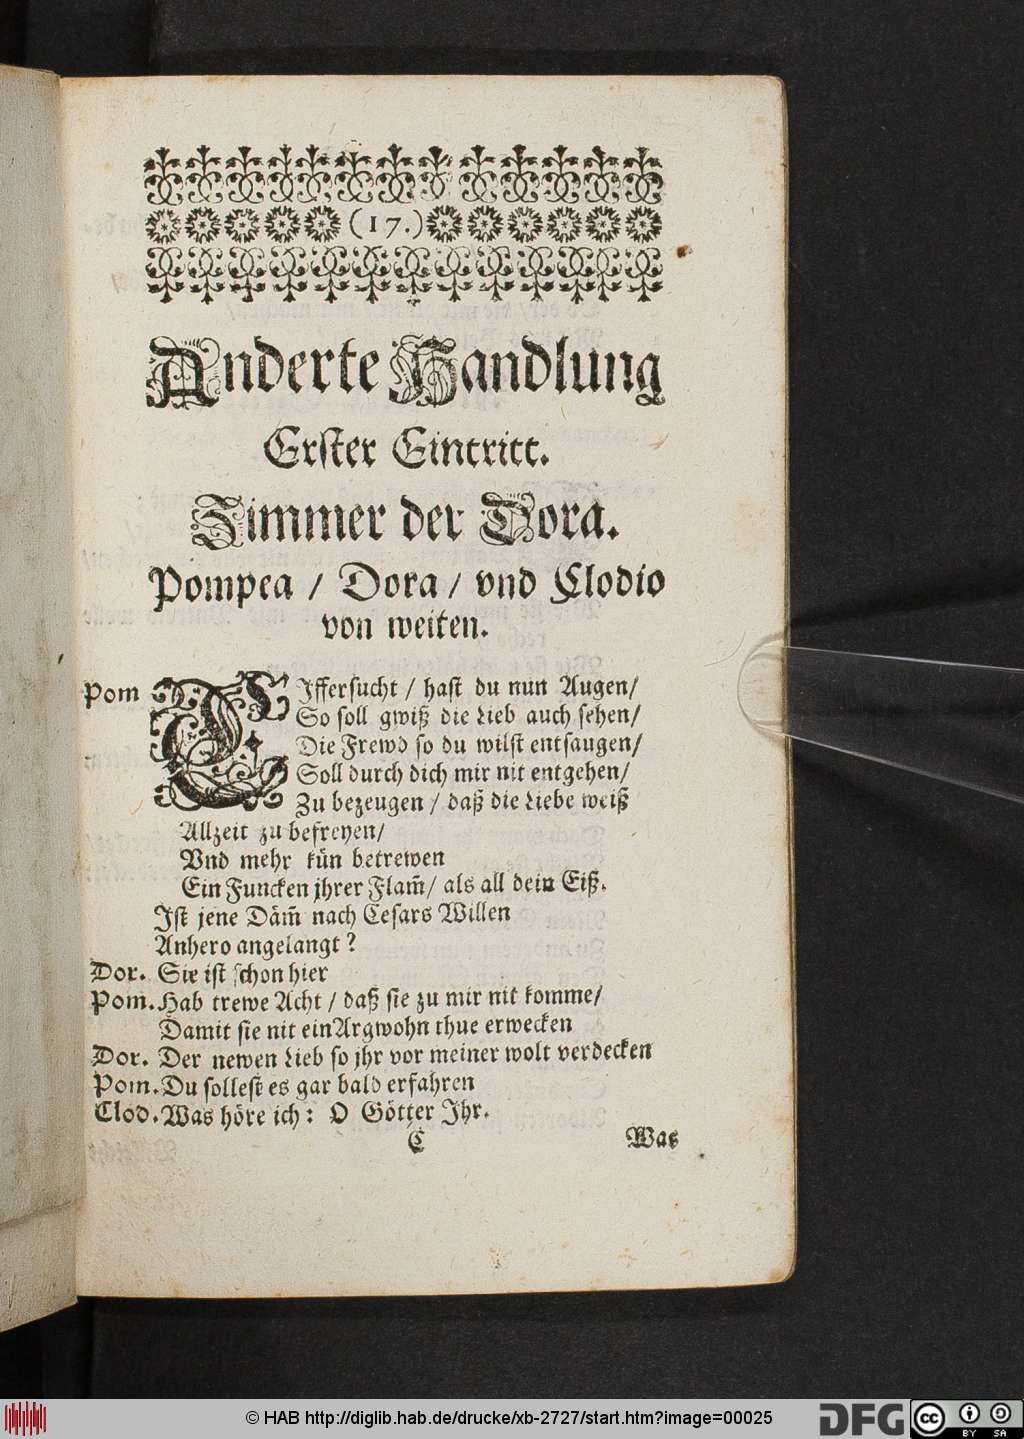 (17.)
Anderte Handlung
Erster Eintritt.
Zimmer der Dora.
Pompea / Dora / vnd Clodio
von weiten.
Pom EIffersucht / hast du nun Augen/
So soll gwiß die Lieb auch sehen/
Die Frewd so du wilst entsaugen/
Soll durch dich mir nit entgehen/
Zu bezeugen / daß die Liebe weiß
Allzeit zu befreyen/
Vnd mehr kün betrewen
Ein Funcken jhrer Flam̃/ als all dein Eiß.
Ist jene Däm̃ nach Cesars Willen
Anhero angelangt?
Dor. Sie ist schon hier
Pom. Hab trewe Acht / daß sie zu mir nit komme/
Damit sie nit ein Argwohn thue erwecken
Dor. Der newen Lieb so jhr vor meiner wolt verdecken
Pom. Du sollest es gar bald erfahren
Clod. Was höre ich: O Götter Jhr.
C Was
© HAB http://diglib.hab.de/drucke/xb-2727/start.htm?image=00025
DFG
cc BY SA